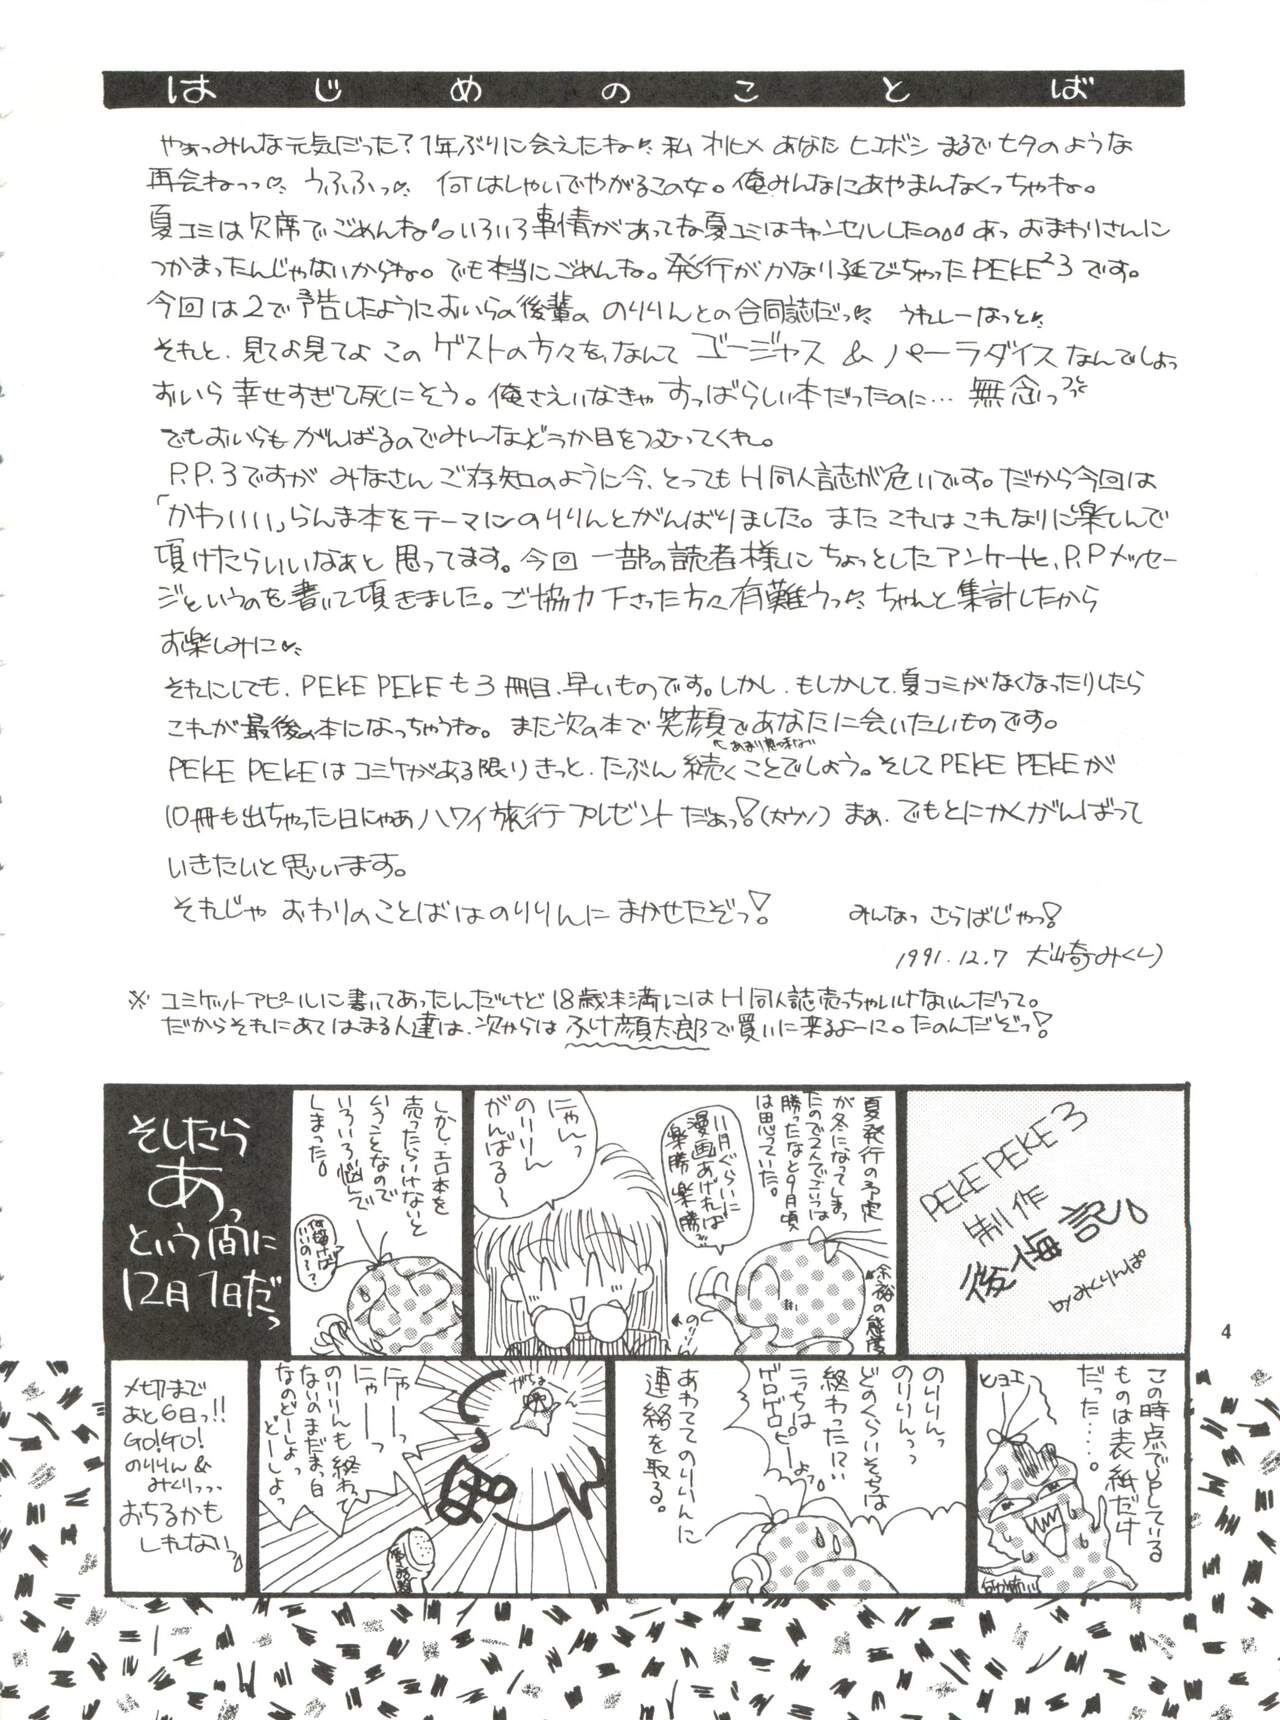 はじめのことば
やぁっみんな元気だった?1年ぶりに会えたね 私 オリヒメ あなた ヒコボシ まるで七夕のような
再会ねっっ うふふっ 何はしゃいでやがるこの女。俺みんなにあやまんなくっちゃね。
夏コミは欠席でごめんね。いろいろ事情があってな夏コミはキャンセルしたの あっ おまわりさんに
つかまったんじゃないからね。でも本当にごめんね。発行がかなり延びちゃったPEKE²3です。
今回は2で予告したようにおいらの後輩の のりりんとの合同誌だっ うれしーなっと
それと、見てお見てよ このゲストの方々を、なんて ゴージャス & パーラダイスなんでしょっ
おいら 幸せすぎて死にそう。俺さえいなきゃ すっばらしい本だったのに… 無念っ
でもおいらもがんばるのでみんなどうか目をつむってくれ。
P.P.3ですが みなさん ご存知のように今、とってもH同人誌が危いです。だから今回は
「かわいい」らんま本をテーマにのりりんとがんばりました。また これはこれなりに楽しんで
頂けたらいいなぁと 思ってます。今回 一部の読者様に ちょっとしたアンケートと、P.Pメッセー
ジというのを書いて頂きました。ご協力下さった方々有難うっ ちゃんと集計したから
お楽しみに
それにしても、PEKE PEKEも3冊目、早いものです。しかし、もしかして、夏コミがなくなったりしたら
これが最後の本になっちゃうね。また次の本で笑顔であなたに会いたいものです。
↑あまり意味ない
PEKE PEKEはコミケがある限りきっと、たぶん 続くことでしょう。そしてPEKE PEKEが
10冊も出ちゃった日にゃあハワイ旅行プレゼント だぁっ!(大ウソ) まぁ、でもとにかくがんばって
いきたいと思います。
それじゃ おわりのことばはのりりんに まかせたぞっ! みんなっ さらばじゃっ!
1991.12.7 犬崎みくり
※ コミケットアピールに書いてあったんだけど 18歳未満にはH同人誌売っちゃいけないんだって。
だからそれにあてはまる人達は、次からは ふけ顔太郎で買いに来るよーに。たのんだぞっ!
PEKE PEKE 3
制作
後悔記
by みくりんぱ
夏発行の予定
が冬になってしまっ
たので2人でこいつは
勝ったなと9月頃
は思っていた。
11月ぐらいに
漫画あげれば
楽勝楽勝
余裕の態度
にゃんっ
のりりん
がんばる〜
のりりん
しかし、エロ本を
売ったらいけないと
いうことなので
いろいろ悩んで
しまった。
何描けば
いいの〜?
そしたら
あっ
という間に
12月1日だっ
この時点でUPしている
ものは表紙だけ
だった……
ヒョエ
のりりんっ
のりりんっ
どのくらいそちらは
終わったにい
こっちは
ゲロゲロピーよっ
あわててのりりんに
連絡を取る。
がちょ
にゃーーっ
にゃーーっ
のりりんも終わって
ないのまだまっ白
なのどーしよっ
どーしよっ
〆切まで
あと6日っ!!
GO!GO!
のりりん&
みくりっっ
おちるかも
しれないっ
4